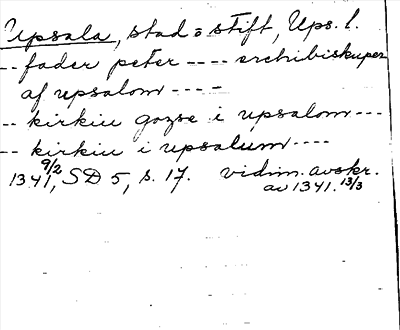 Upsala, stad o stift, Ups. l.
-- fader peter ---- erchibiskuper
af upsalom ----
-- kirkiu gozse i upsalom ---
-- kirkiu i upsalum ----
1341 9/2, SD 5, s. 17. vidim. avskr.
av 1341. 13/3